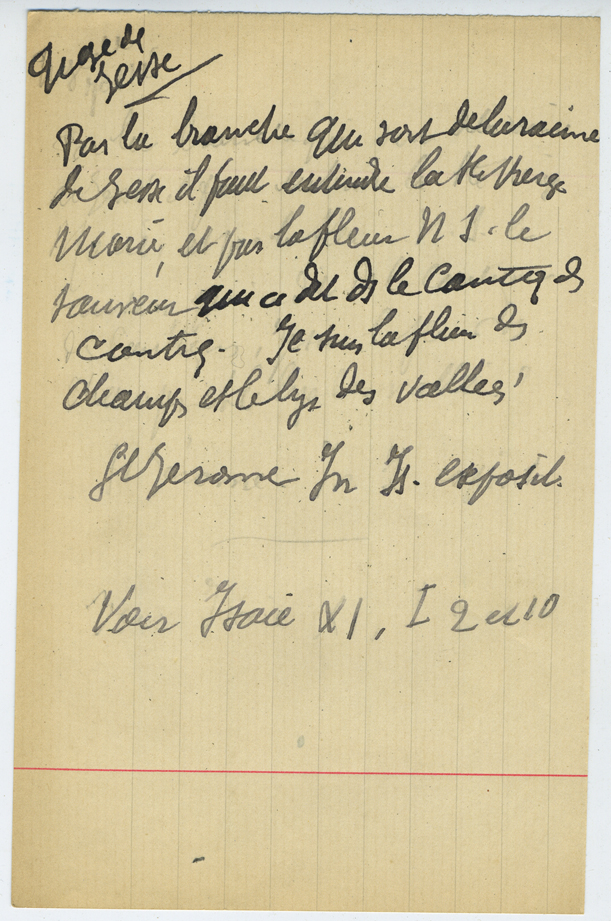 de
Jesse
Par la branche qui sort de la racine
de Jesse il faut entendre la Ste Vierge
Marie, et par la fleur N S. le
Sauveur qui a dit ds le Cantiq des
Cantiq. Je suis la fleur des
champs et le lys des vallées
St Jerome In Is. exposit.
Voir Isaie XI, I 2 et 10